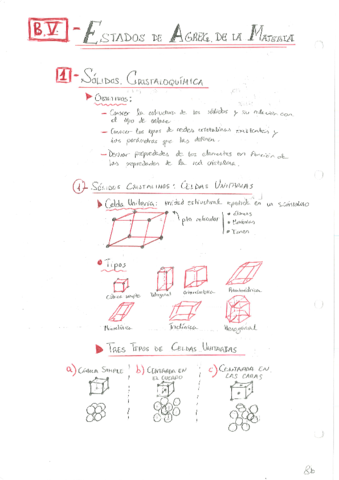 B.V. - Estados de Agreg. de la Materia
1 - Sólidos. Cristaloquímica
Objetivos:
- Conocer la estructura de los sólidos y su relación con
el tipo de enlace.
- Conocer los tipos de redes cristalinas existentes y
los parámetros que las definen.
- Deducir propiedades de los elementos en función de
las propiedades de la red cristalina.
1) - Sólidos Cristalinos: Celdas Unitarias
Celda Unitaria: unidad estructural repetida en un sólido
pto reticular
Átomos
Moléculas
Iones
Tipos
Cúbica simple
Tetragonal
Ortorrómbica
Romboédrica
Monoclínica
Triclínica
Hexagonal
Tres Tipos de Celdas Unitarias
a) Cúbica Simple
b) Centrada en
el cuerpo
c) Centrada en
las caras